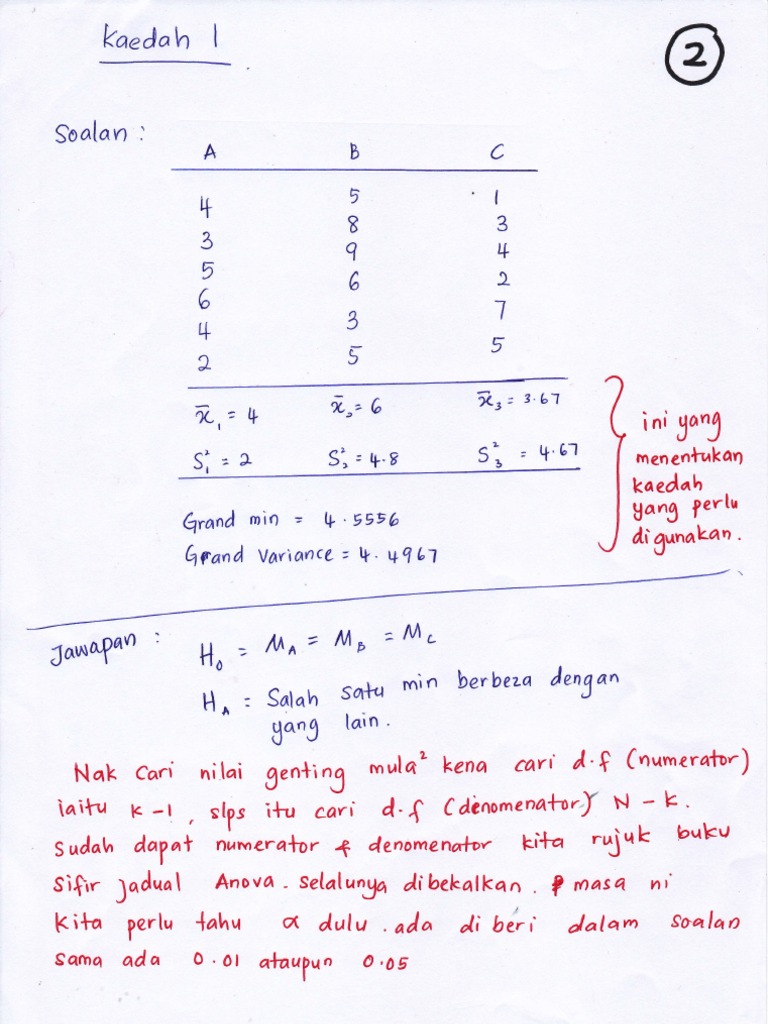 Kaedah 1
2
Soalan :
A B C
4 5 1
3 8 3
5 9 4
6 6 2
4 3 7
2 5 5
x̄₁ = 4 x̄₂ = 6 x̄₃ = 3.67
S₁² = 2 S₂² = 4.8 S₃² = 4.67
ini yang
menentukan
kaedah
yang perlu
digunakan.
Grand min = 4.5556
Grand Variance = 4.4967
Jawapan :
H₀ = M_A = M_B = M_C
H_A = Salah satu min berbeza dengan
yang lain.
Nak cari nilai genting mula² kena cari d.f (numerator)
iaitu K-1, slps itu cari d.f (denomenator) N-K.
sudah dapat numerator & denomenator kita rujuk buku
sifir jadual Anova. selalunya dibekalkan. masa ni
kita perlu tahu α dulu. ada di beri dalam soalan
sama ada 0.01 ataupun 0.05